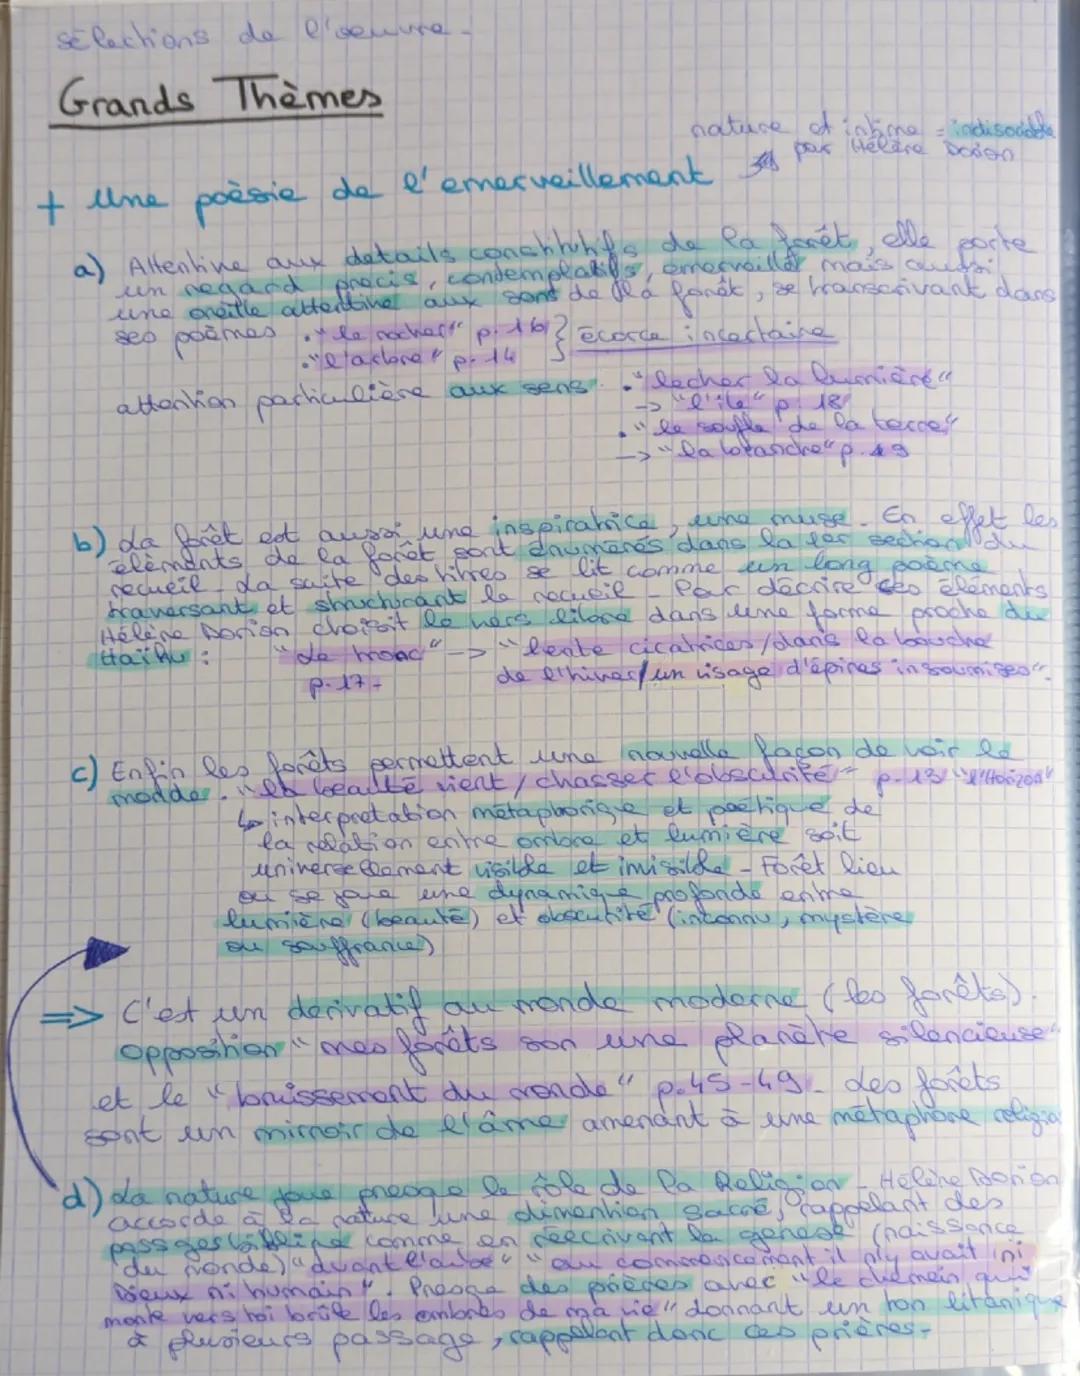 sélections de l'oeuvre.
Grands Thèmes
nature et intime = indisociable
par Hélène Dorion
+ Une poèsie de l'emerveillement
a) Attentive aux details constitutifs de la forêt, elle porte
un regard précis, contemplatifs, emerveiller mais aussi
une oreille attentive aux sons de la forêt, se transcrivant dans
ses poèmes . "le rocher" p. 16 } écorce incertaine
. "l'arbre" p. 14
attention particulière aux sens . "lecher la lumière"
-> "l'île" p. 18
. "le souffle de la terre"
-> "la branche" p. 19
b) La forêt est aussi une inspiratrice, une muse. En effet les
élèments de la forêt sont énumérés dans la 1er section du
recueil. La suite des titres se lit comme un long poème
traversant et structurant le recueil. Par décrire ces élèments
Hélène Dorion choisit le vers libre dans une forme proche du
Haïku : "Le tronc" -> "lente cicatrices / dans la bouche
p. 17. de l'hiver / un visage d'épines insoumises".
c) Enfin les forêts permettent une nouvelle façon de voir le
monde. "la beauté vient / chasser l'obscurité" p. 13 "l'Horizon"
↳ interpretation métaphorique et poétique de
la relation entre ombre et lumière soit
universellement visible et invisible - Forêt lieu
ou se joue une dynamique profonde entre
lumière (beauté) et obscurité (inconnu, mystère
ou souffrance)
=> C'est un derivatif au monde moderne (les forêts).
Opposition "mes forêts son une planète silencieuse"
et le "bruissement du monde" p. 45-49. Les forêts
sont un mirroir de l'âme amenant à une métaphore religia
d) La nature joue presqe le rôle de la Religion. Hélène Dorion
accorde à la nature une dimention sacré, rappelant des
passges bibliqe comme en réecrivant la genese (naissance
du monde) "avant l'aube" "au commencement il n'y avait ni
Dieux ni humain". Presqe des prières avec "le chemin qui
monte vers toi brûle les ombres de ma vie" donnant un ton litanique
à plusieurs passage, rappelant donc ces prières.